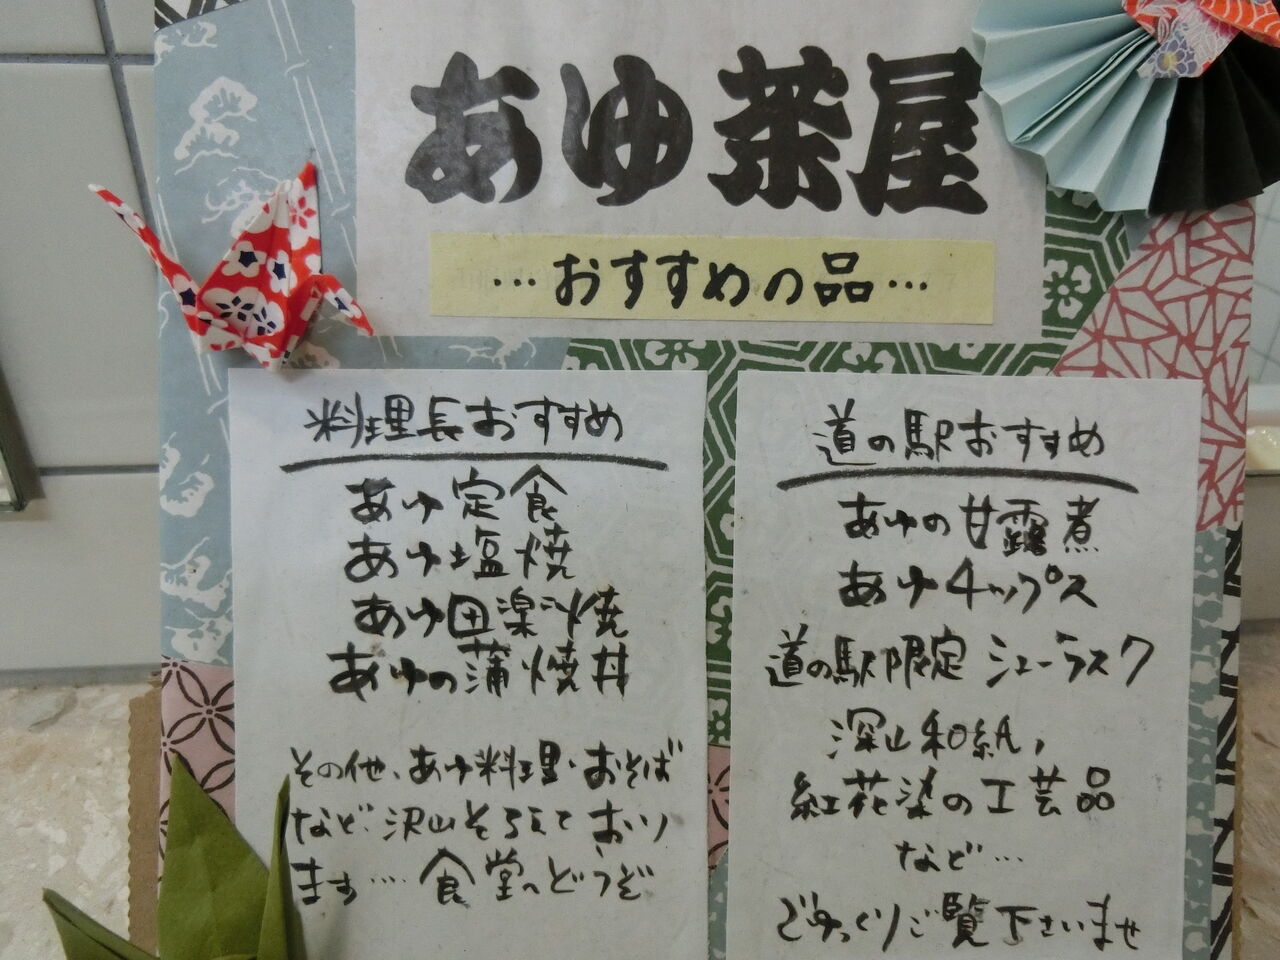 あゆ茶屋
…おすすめの品…
料理長おすすめ
あゆ定食
あゆ塩焼
あゆ田楽焼
あゆの蒲焼丼
その他、あゆ料理・おそば
など、沢山そろえており
ます…食堂へどうぞ
道の駅おすすめ
あゆの甘露煮
あゆチップス
道の駅限定 シューラスク
深山和紙、
紅花染の工芸品
など…
ごゆっくりご覧下さいませ